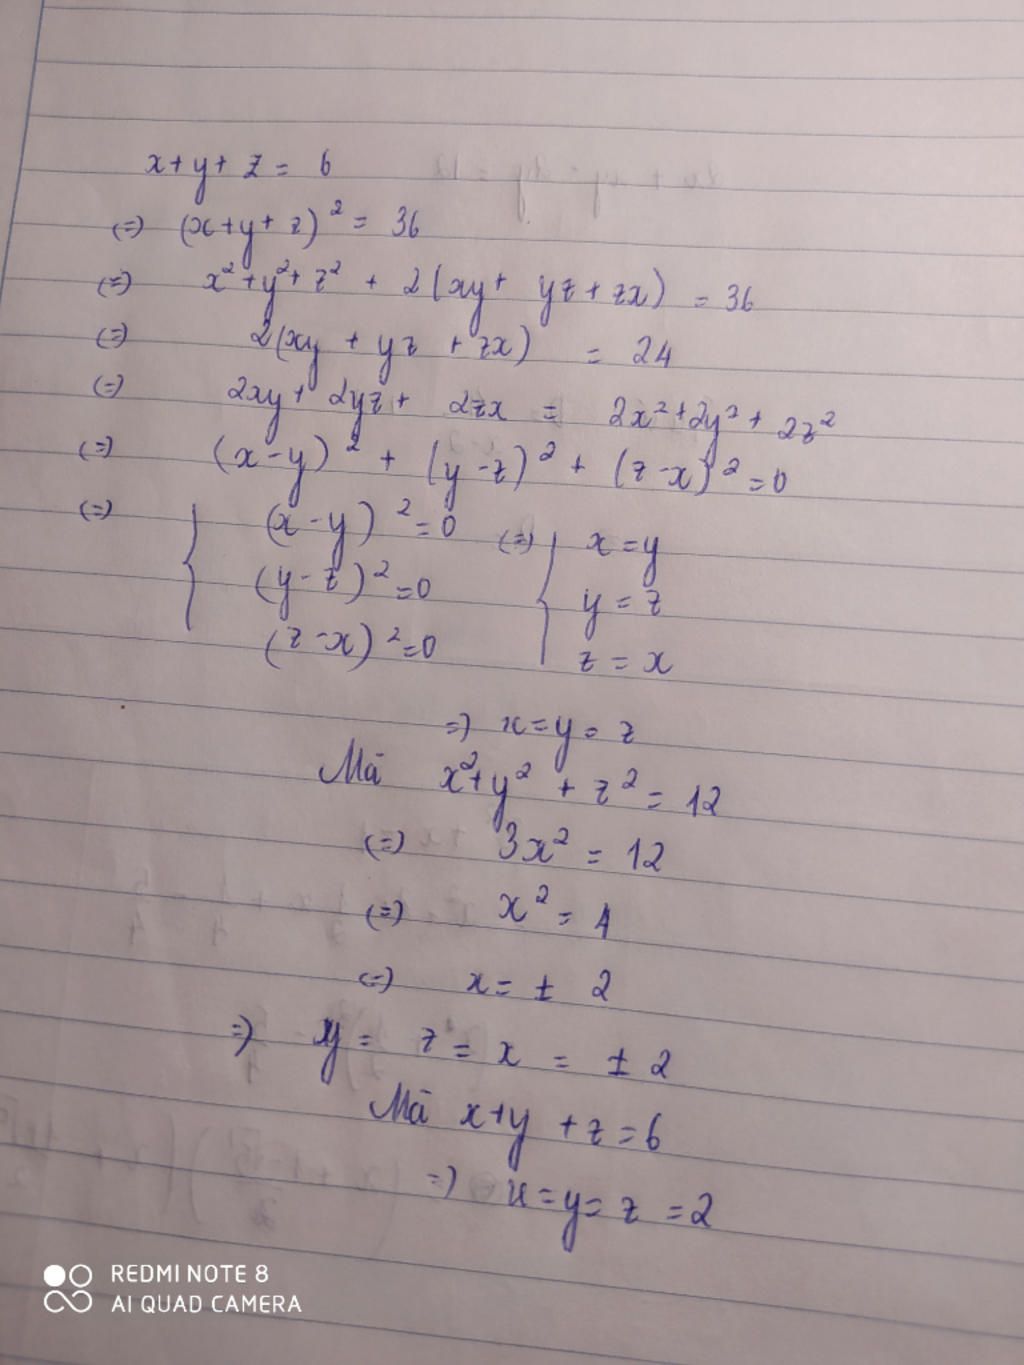 x+y+z = 6
(=) (x+y+z)² = 36
(=) x²+y²+z² + 2(xy+ yz+zx) = 36
(=) 2(xy + yz + zx) = 24
(=) 2xy+ 2yz+ 2zx = 2x²+2y²+ 2z²
(=) (x-y)² + (y-z)² + (z-x)² =0
(=) { (x-y)²=0 (=) { x=y
(y-z)²=0 y=z
(z-x)²=0 z=x
=) x=y= z
Mà x²+y² + z² = 12
(=) 3x² = 12
(=) x² = 4
(=) x= ± 2
=) y= z = x = ± 2
Mà x+y +z=6
=) x=y= z =2
REDMI NOTE 8
AI QUAD CAMERA